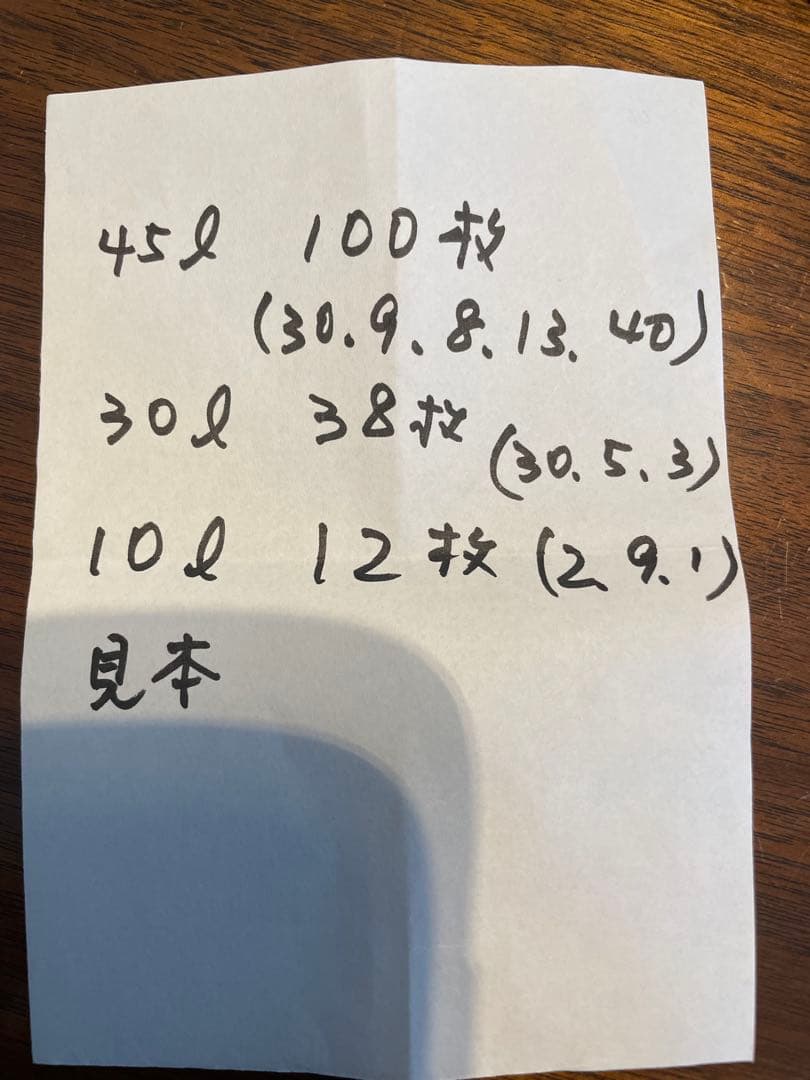 45ℓ 100枚
(30.9.8.13.40)
30ℓ 38枚 (30.5.3)
10ℓ 12枚 (2.9.1)
見本